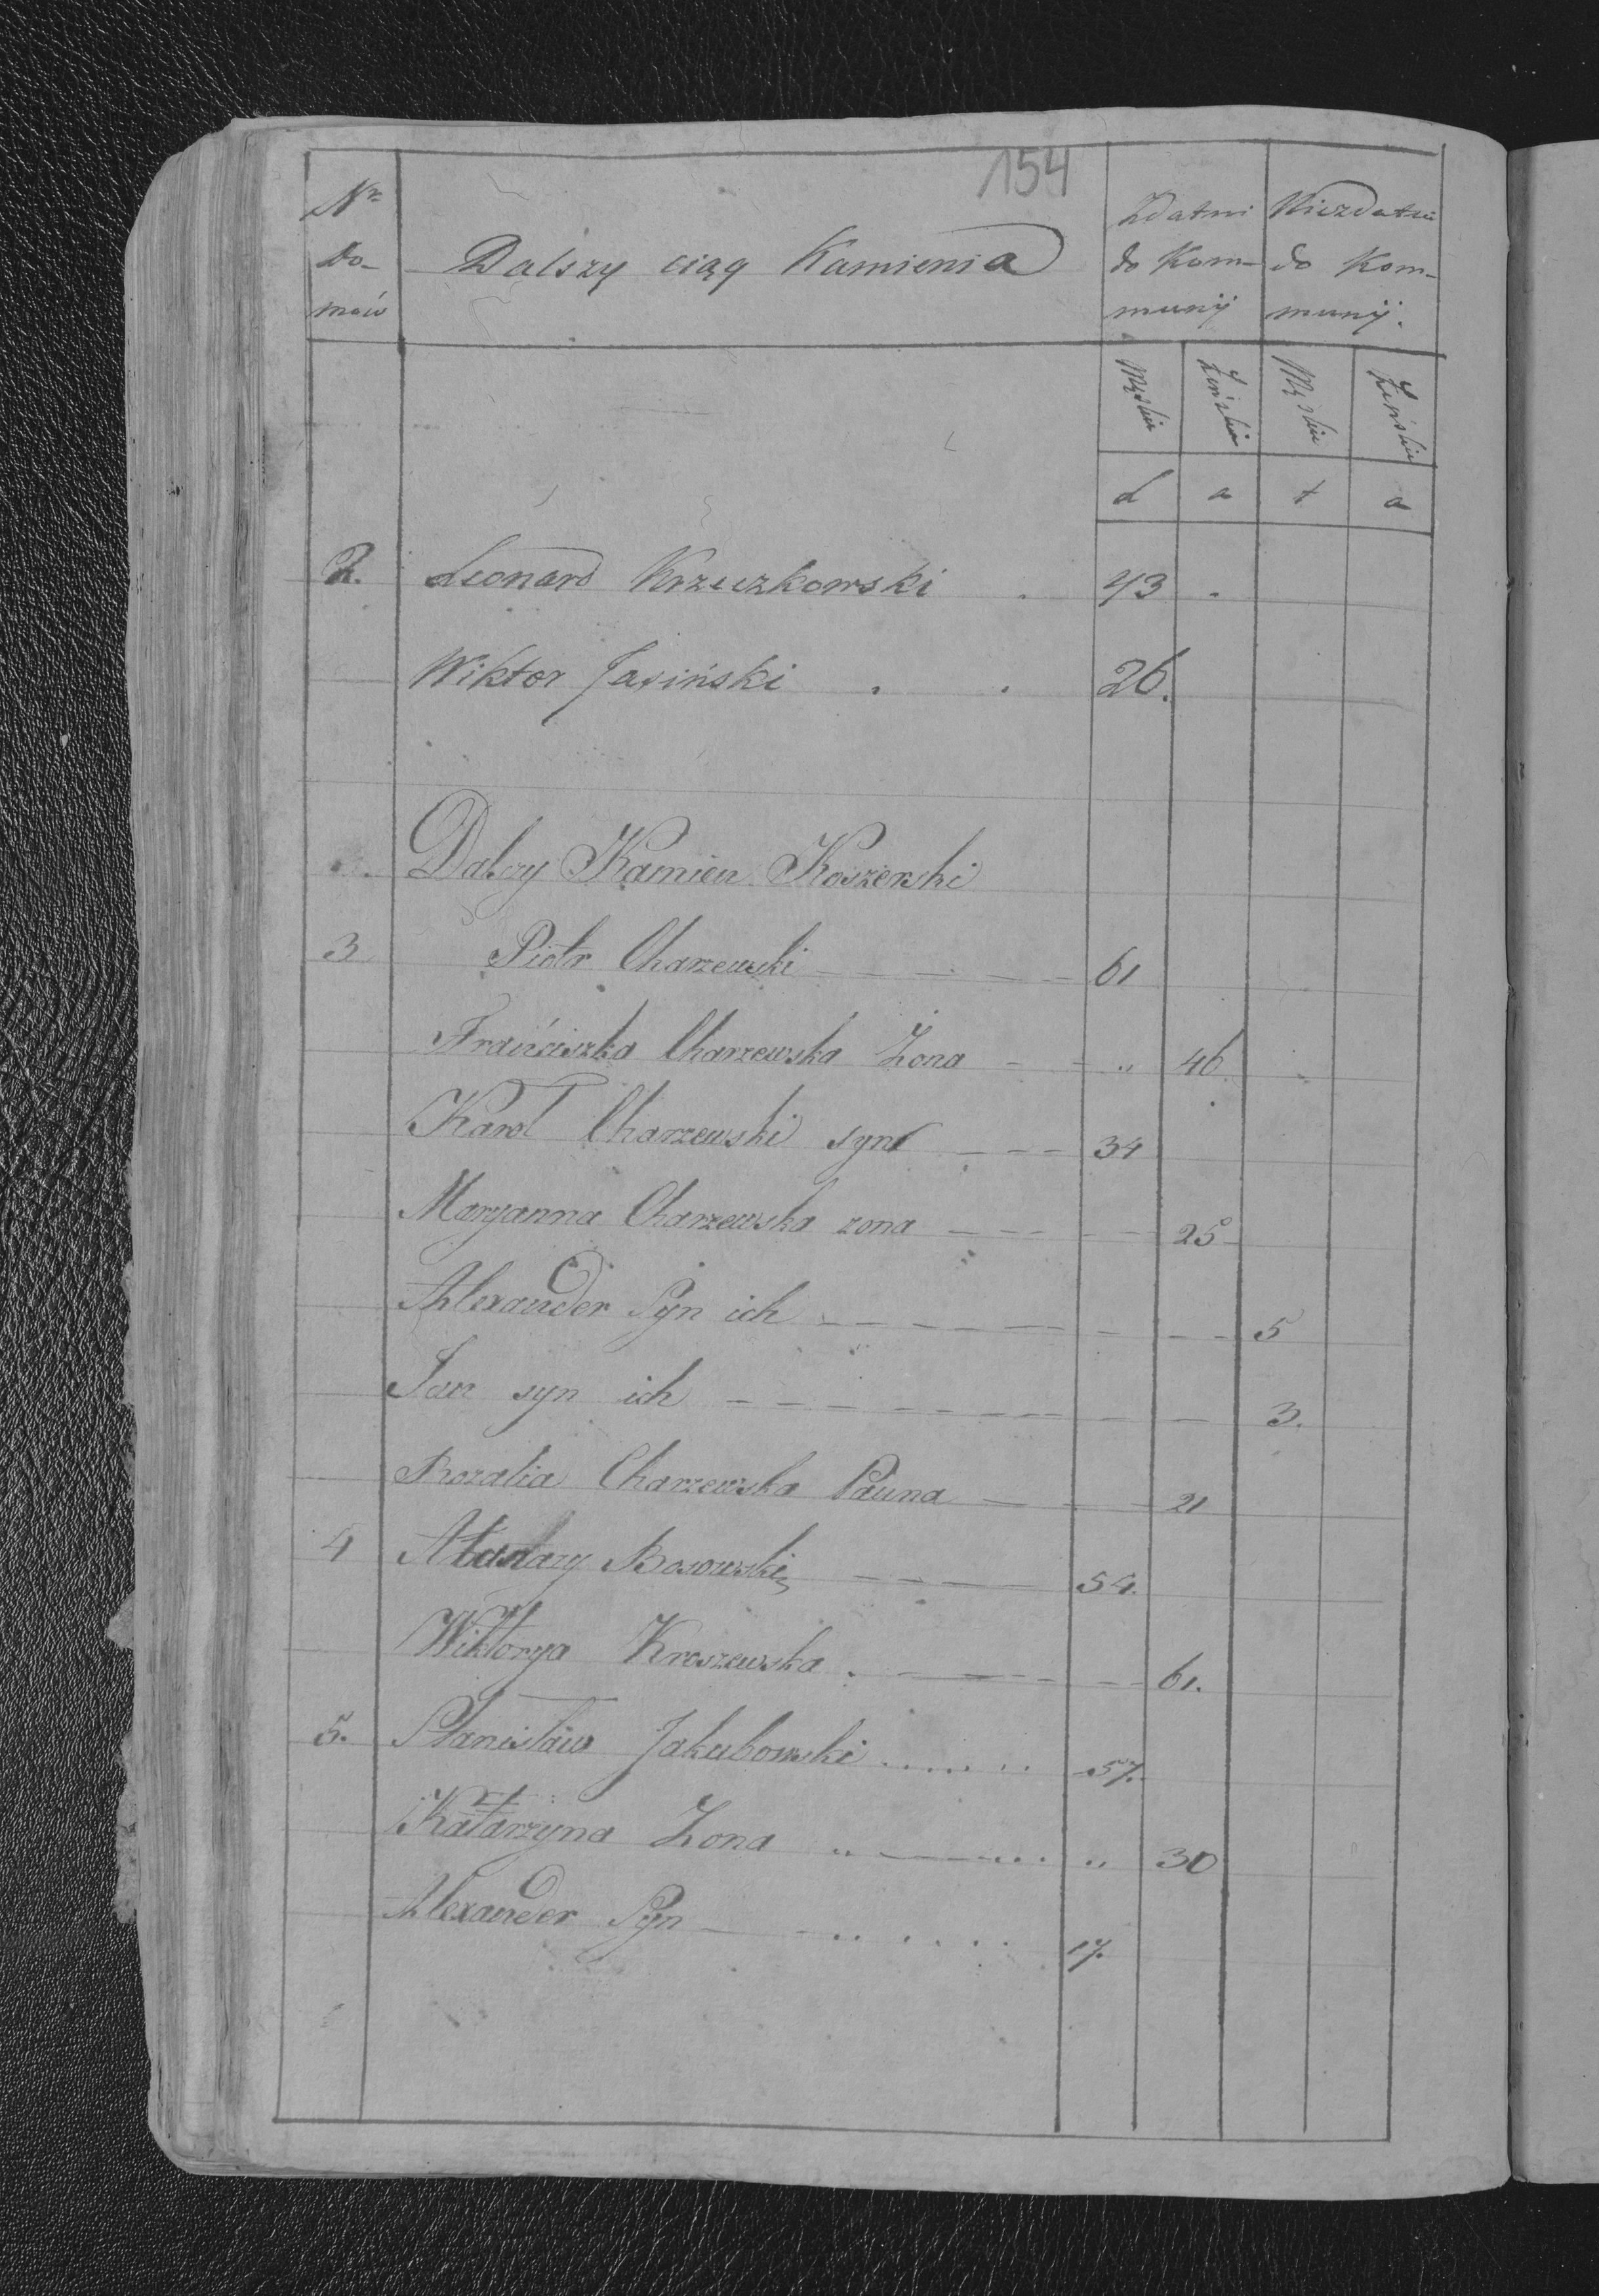 154
Nr Do- mów
Dalszy ciąg Kamienia
Zdatni do Kom- munij
Niezdatni do Kom- munij.
Męskie Żeńskie Męskie Żeńskie
L a t a
2. Leonard Krzeczkowski . 43 .
Wiktor Jasiński . . 26.
Dalszy Kamien Koszerski
3 Piotr Charzewski 61
Franciszka Charzewska Zona " 46
Karol Charzewski syn 34
Maryanna Charzewska zona 25
Alexander Syn ich 5
Jan syn ich 3.
Rozalia Charzewska Panna 21
4 Atanazy Bosowski 54.
Wiktorya Kroszewska . 61.
5. Stanisław Jakubowski 57.
Katarzyna Zona " " 30
Alexander Syn 17.